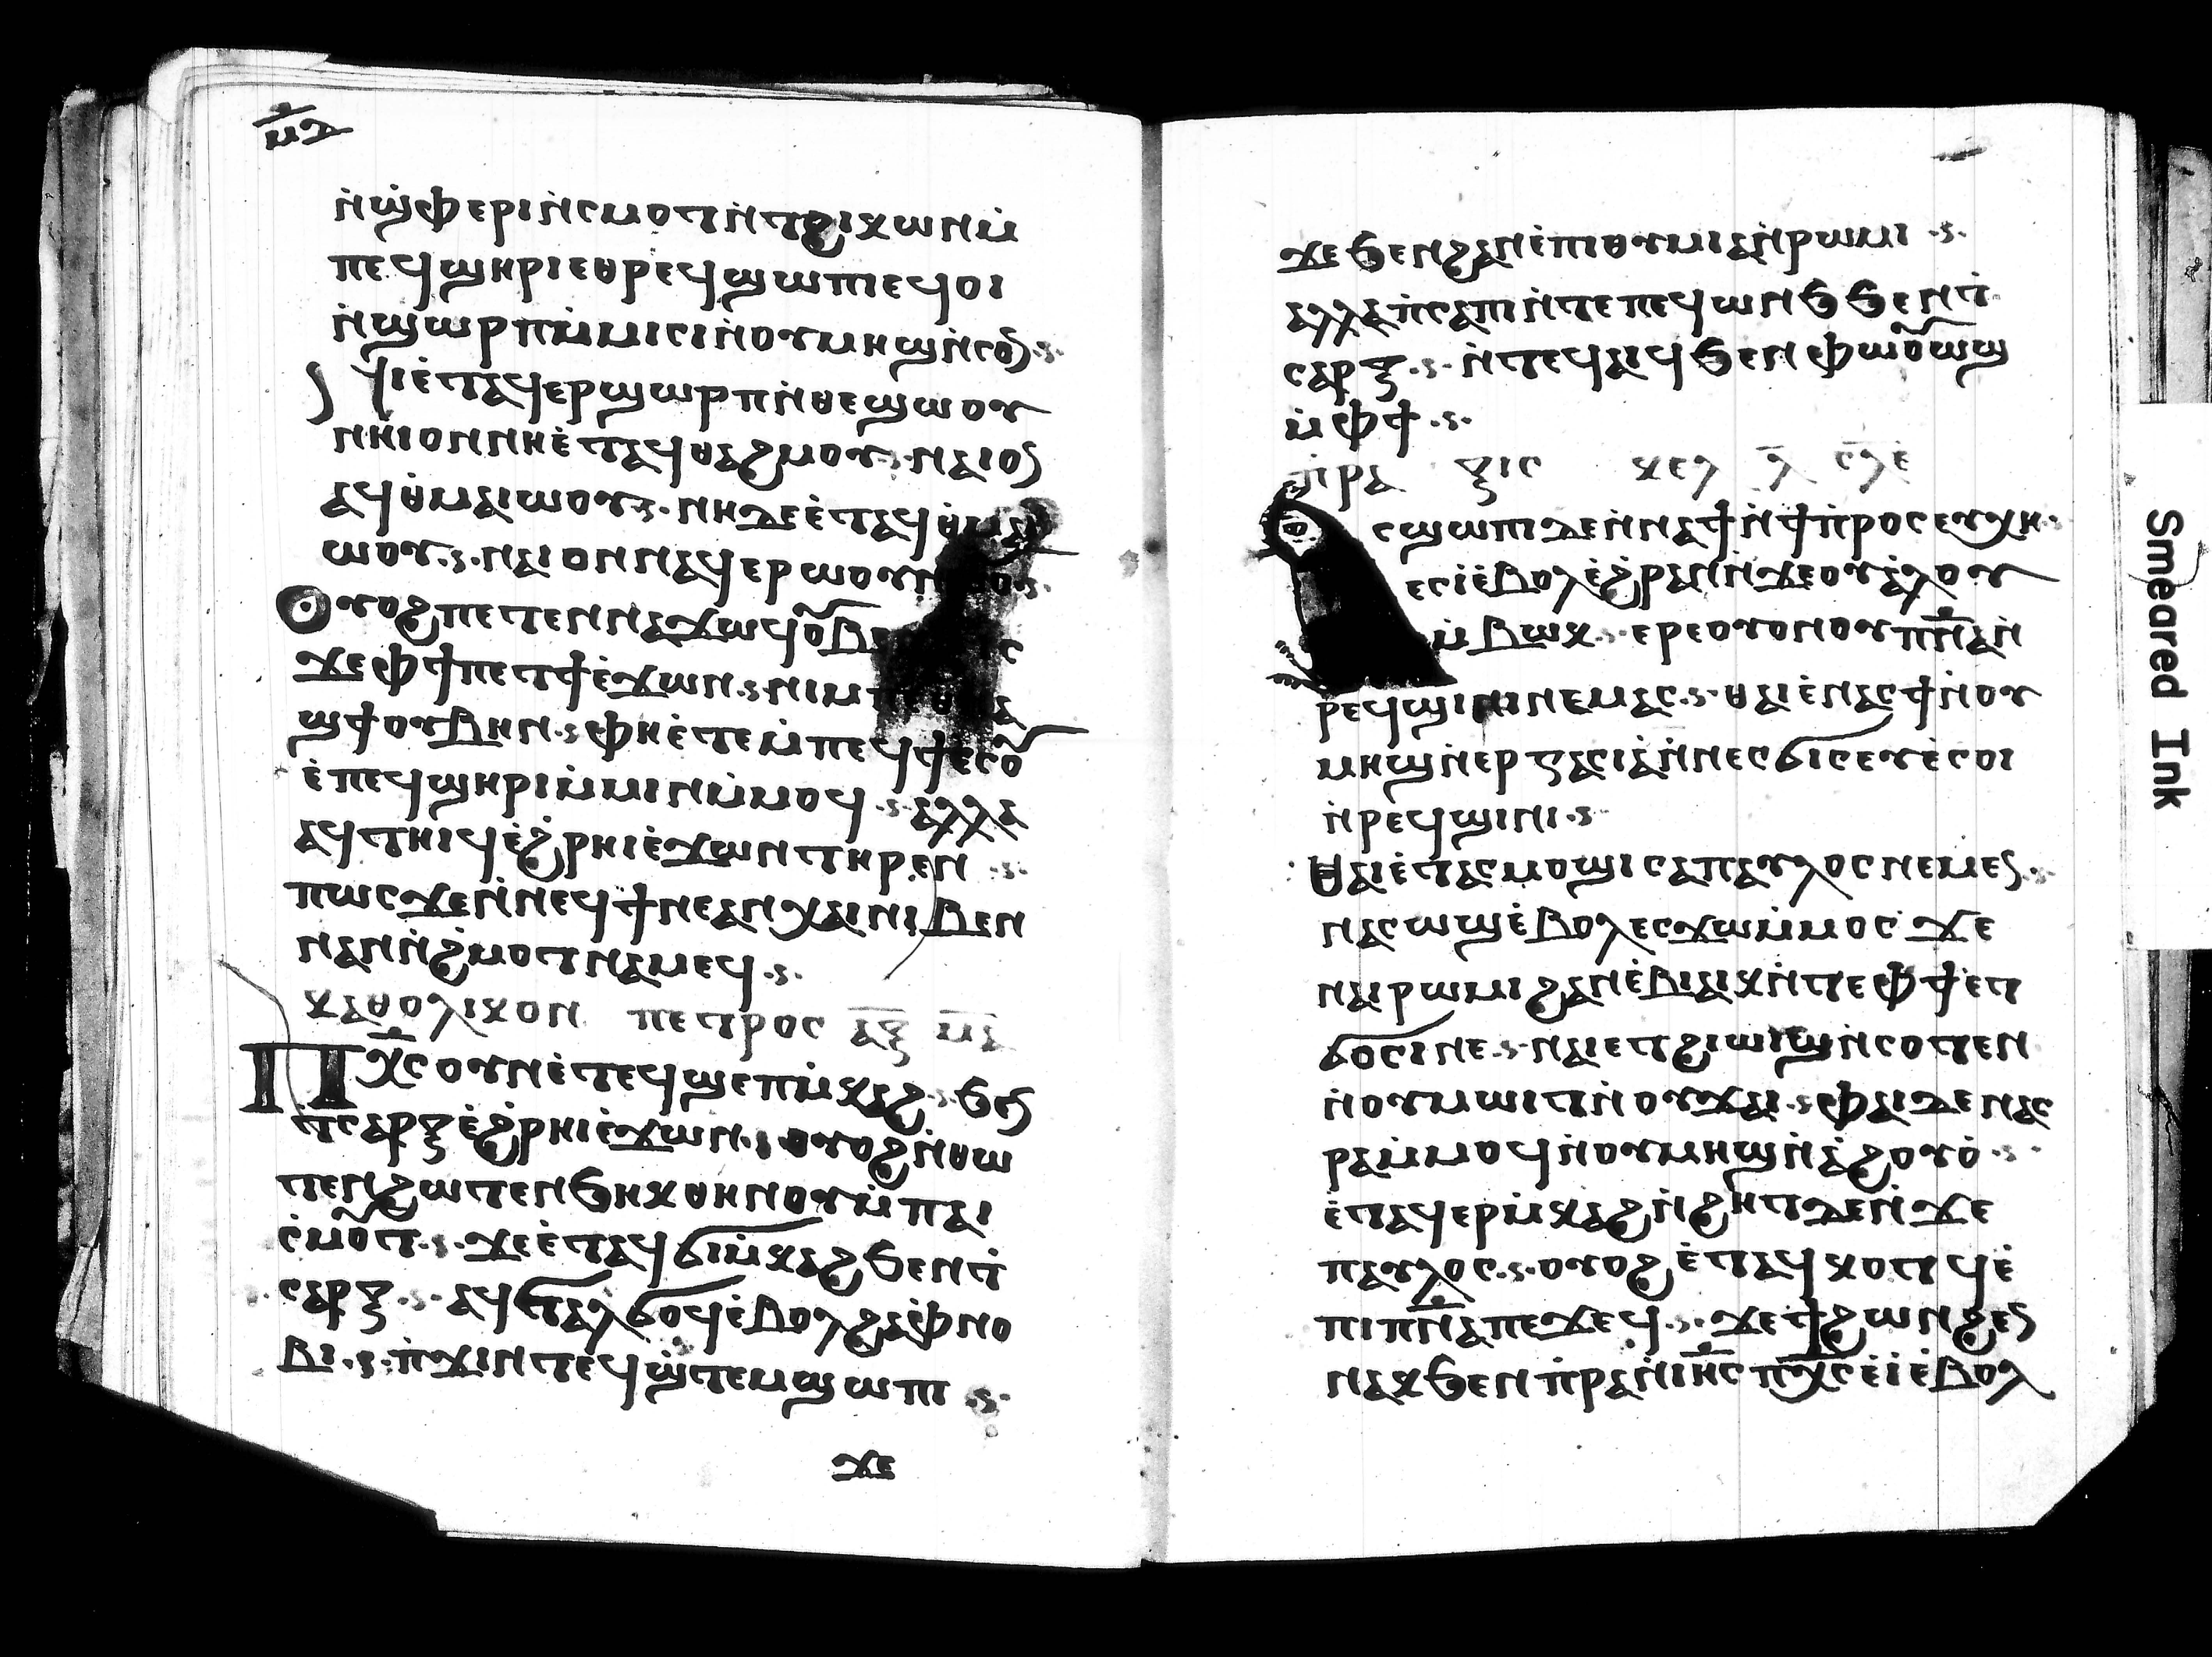 ⲙ̅ⲇ̅
ⲛ̀ϣⲫⲉⲣⲓⲛ̀ⲥⲙⲟⲧⲛ̀ⲧϩⲓⲕⲱⲛⲙ̀
ⲡⲉϥϣⲏⲣⲓⲉⲑⲣⲉϥϣⲱⲡⲓⲉϥⲟⲓ
ⲛ̀ϣⲱⲣⲡⲙ̀ⲙⲓⲥⲓⲛ̀ⲟⲩⲙⲏϣⲛ̀ⲥⲟⲛ
ⲛⲏⲉ̀ⲧⲁϥⲉⲣϣⲱⲣⲡⲛ̀ⲑⲉϣⲱⲟⲩ
ⲛⲏⲓⲟⲛⲛⲏⲉ̀ⲧⲁϥⲑⲁϩⲙⲟⲩ ⲛⲁⲓⲟⲛ
ⲁϥⲑ̀ⲙⲁⲓⲱⲟⲩ ⲛⲏⲇⲉⲉ̀ⲧⲁϥⲑ̀ⲙⲁⲓ
ⲱⲟⲩ ⲛⲁⲓⲟⲛⲛⲁϥⲉⲣⲱⲟⲩ
ⲟⲩⲟϩⲡⲉⲧⲉⲛⲛⲁϫⲱϥⲟⲩⲃⲉ
ϫⲉⲫϯⲡⲉⲧϯⲉ̀ϫⲱⲛ ⲛⲓⲙ
ϣϯⲟⲩⲃⲏⲛ ⲫⲏⲉ̀ⲧⲉⲙ̀ⲡⲉϥϯⲁⲥⲟ
ⲉ̀ⲡⲉϥϣⲏⲣⲓⲙ̀ⲙⲓⲛⲙ̀ⲙⲟϥ ⲁⲗⲗⲁ
ⲁϥⲧⲏⲓϥⲉ̀ϩ̀ⲣⲏⲓⲉ̀ϫⲱⲛⲧⲏⲣⲉⲛ
ⲡⲱⲥϫⲉⲛ̀ⲛⲉϥϯⲛⲉⲁⲛⲭⲁⲓⲛⲓⲃⲉⲛ
ⲛⲁⲛⲛ̀ϩ̀ⲙⲟⲧⲛⲉⲙⲉϥ
ⲕⲁⲑⲟⲗⲓⲕⲟⲛ ⲡⲉⲧⲣⲟⲥ ⲁ̅ⲝ̅ ⲙ̅ⲇ̅
ⲡⲭ̅ⲥⲟⲩⲛⲉ̀ⲧⲉϥϣⲉⲡⲙ̀ⲕⲁϩ ϧⲉⲛ
ⲧ̀ⲥⲁⲣⲝⲉ̀ϩ̀ⲣⲏⲓⲉ̀ϫⲱⲛ ⲟⲩⲟϩⲛ̀ⲑⲱ
ⲧⲉⲛϩⲱⲧⲉⲛϧⲏⲕⲑⲏⲛⲟⲩⲙ̀ⲡⲁⲓ
ⲥ̀ⲙⲟⲧ ϫⲉⲉ̀ⲧⲁϥϭⲓⲙ̀ⲕⲁϩϧⲉⲛⲧ̀
ⲥⲁⲣⲝ ⲁϥⲧⲁⲗϭⲟϥⲉ̀ⲃⲟⲗϩⲁⲫ̀ⲛⲟ
ⲃⲓ ⲡ̀ϫⲓⲛⲧⲉϥϣ̀ⲧⲉⲙϣⲱⲡⲓ
ϫⲉ
ϫⲉϧⲉⲛϩⲁⲛⲉ̀ⲡⲓⲑⲩⲙⲓⲁⲛ̀ⲣⲱⲙⲓ
ⲁⲗⲗⲁⲡ̀ⲥⲁⲡⲓⲛ̀ⲧⲉⲡⲉϥⲱⲛϧϧⲉⲛⲧ̀
ⲥⲁⲣⲝ ⲛ̀ⲧⲉϥⲁⲓϥϧⲉⲛⲫⲱⲟⲩⲱϣ
ⲙ̀ⲫϯ
ⲡ̀ⲣⲁ ⲝⲓⲥ ⲕⲉⲫ ⲗ̅ ⲥ̅ⲗ̅ⲉ̅
ⲥϣⲱⲡⲓⲇⲉⲛ̀ⲛⲁϯⲛ̀ϯⲡ̀ⲣⲟⲥⲉⲩⲭⲏ
ⲉⲥⲓ̀ⲉ̀ⲃⲟⲗⲉ̀ϩ̀ⲣⲁⲛⲛ̀ϫⲉⲟⲩⲁ̀ⲗⲟⲩ
ⲙ̀ⲃⲱⲕ ⲉⲣⲉⲟⲩⲟⲛⲟⲩⲡⲛ̅ⲁⲛ̀
ⲣⲉϥϣⲓⲛⲓⲛⲉⲙⲁⲥ ⲑⲁⲓⲉ̀ⲛⲁⲥϯⲛ̀ⲟⲩ
ⲙⲏϣⲛ̀ⲉⲣⲅⲁⲥⲓⲁⲛ̀ⲛⲉⲥϭⲓⲥⲉⲩⲉ̀ⲥⲟⲓ
ⲛ̀ⲣⲉϥϣⲓⲛⲓ
ⲑⲁⲓⲉ̀ⲧⲁⲥⲙⲟϣⲓⲥⲁⲡⲁⲩⲗⲟⲥⲛⲉⲙⲉⲛ
ⲛⲁⲥⲱϣⲉ̀ⲃⲟⲗⲉⲥϫⲱⲙ̀ⲙⲟⲥ ϫⲉ
ⲛⲁⲓⲣⲱⲙⲓϩⲁⲛⲉ̀ⲃⲓⲁⲓⲕⲛ̀ⲧⲉⲫϯⲉⲧ
ϭⲟⲥⲓⲛⲉ ⲛⲁⲓⲉⲧϩⲓⲱⲓϣⲛ̀ⲥⲟⲧⲉⲛ
ⲛ̀ⲟⲩⲙⲱⲓⲧⲛ̀ⲟⲩϫⲁⲓ ⲫⲁⲓⲇⲉⲛⲁⲥ
ⲣⲁⲙ̀ⲙⲟϥⲛ̀ⲟⲩⲙⲏϣⲛ̀ⲁ̀ϩⲟⲩⲟ̀
ⲉ̀ⲧⲁϥⲉⲣⲙ̀ⲕⲁϩⲛ̀ϩⲏⲧⲇⲉⲛ̀ϫⲉ
ⲡⲁⲩⲗⲟⲥ ⲟⲩⲟϩⲉ̀ⲧⲁϥⲕⲟⲧϥⲉ̀
ⲡⲓⲡⲛ̅ⲁⲡⲉϫⲉϥ ϫⲉϯϩⲱⲛϩⲉⲛ
ⲛⲁⲕϧⲉⲛⲡ̀ⲣⲁⲛⲓⲏ̅ⲥⲡⲭ̅ⲥⲉ̀ⲓ̀ⲉ̀ⲃⲟⲗ
Smeared Ink